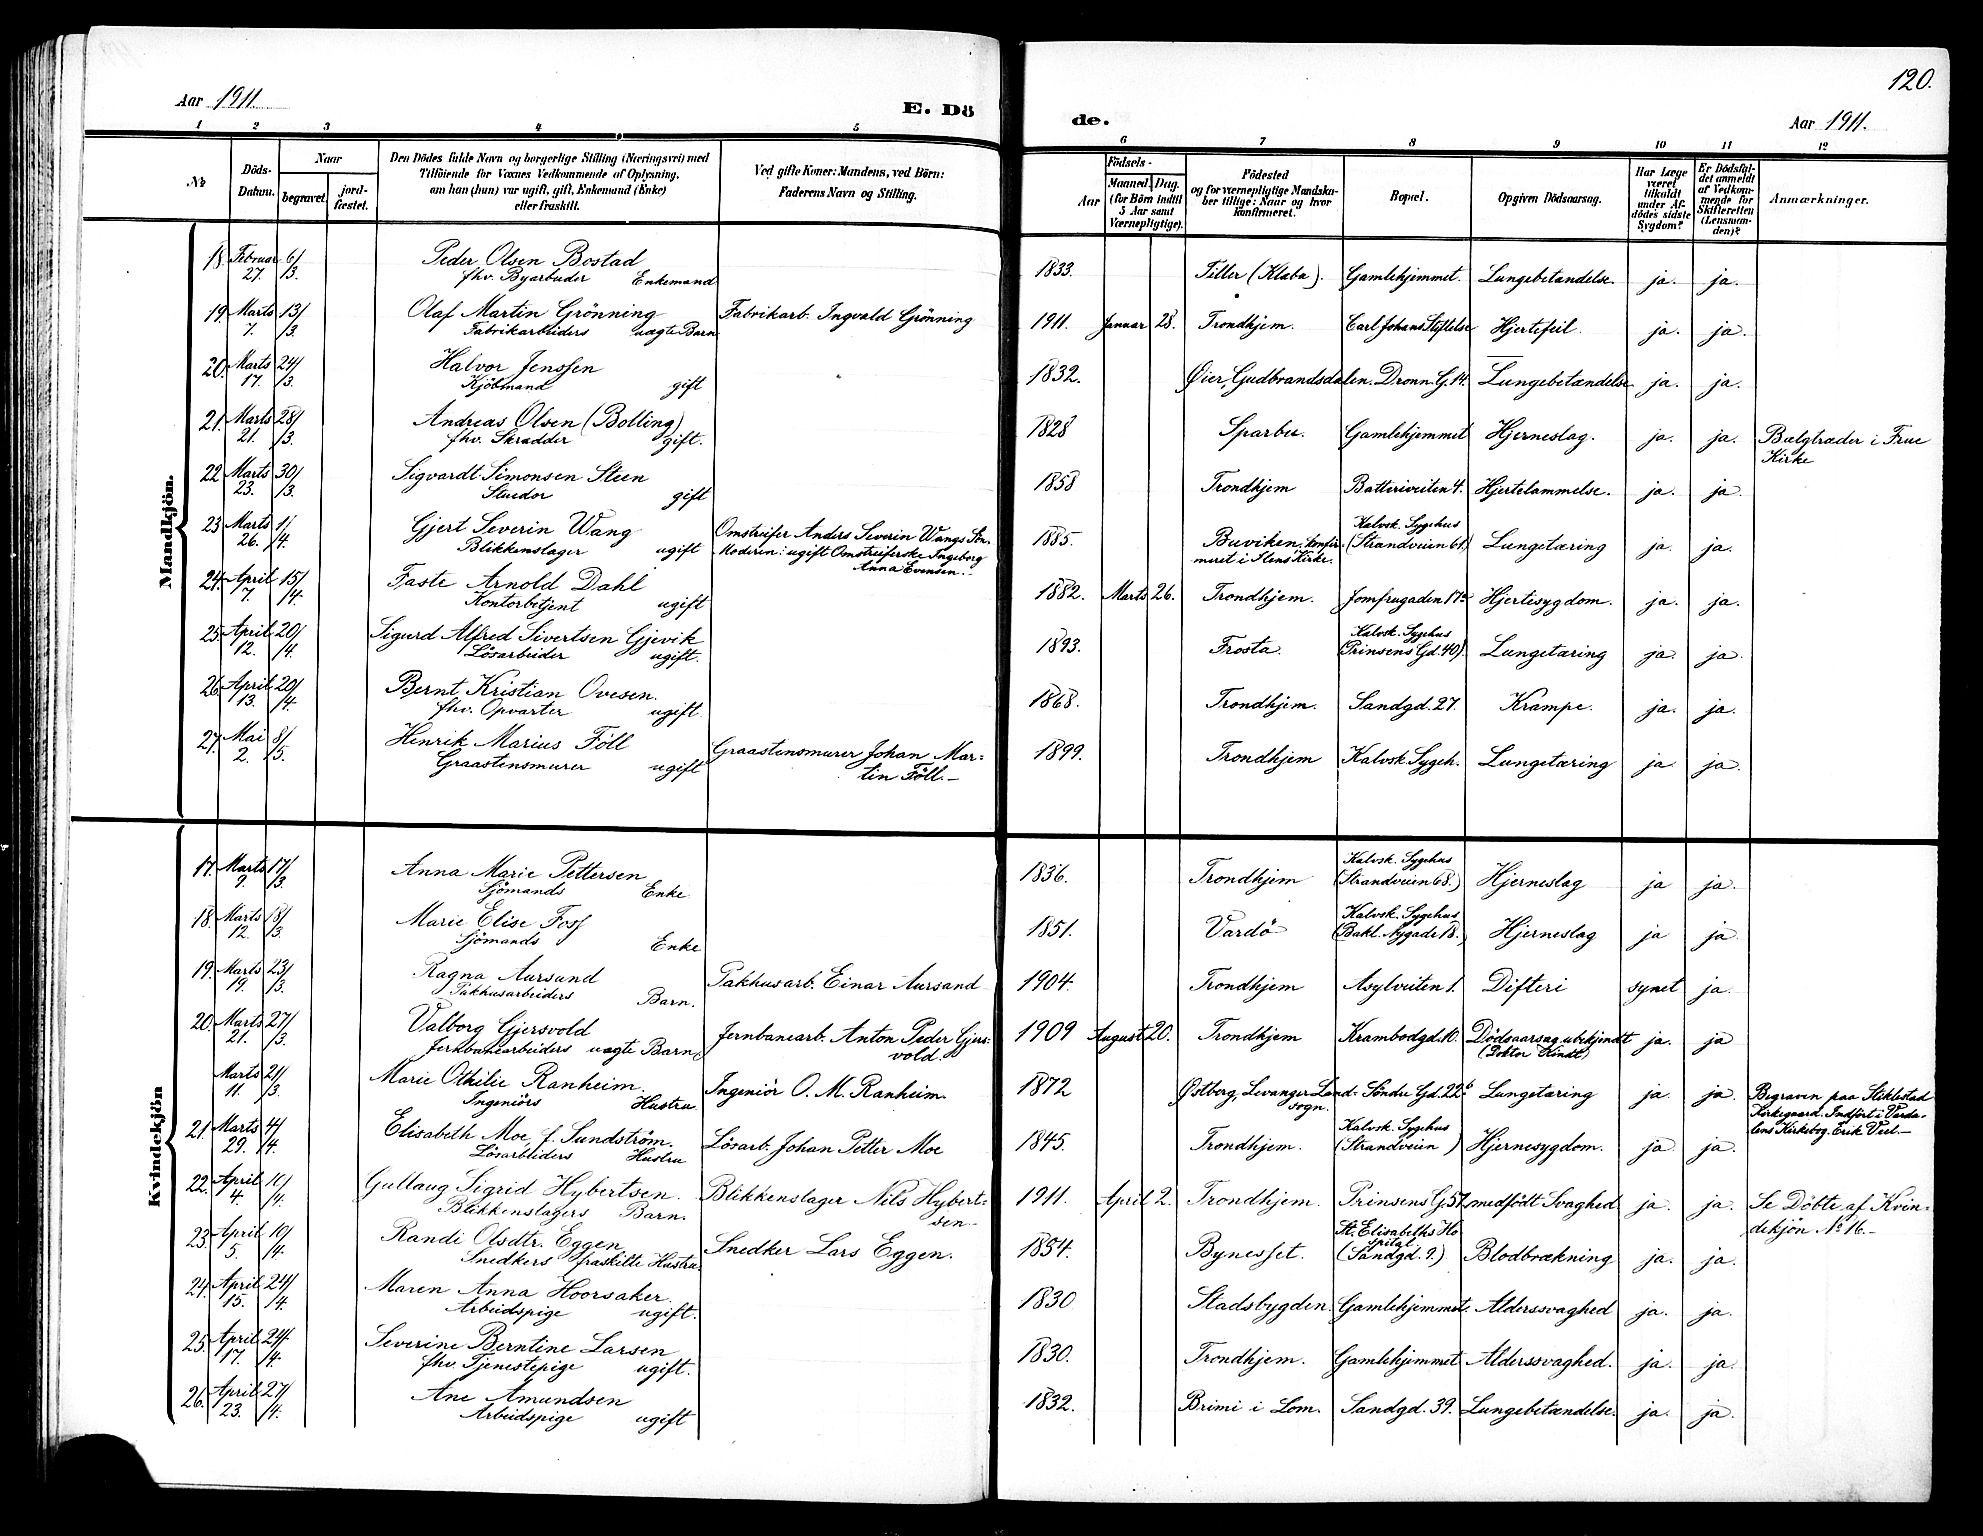 120.
Aar 1911.
E. Dö
de.
Aar 1911.
1 2 3 4 5 6 7 8 9 10 11 12
№
Döds-
Datum.
Naar
begravet.
jord-
fæstet.
Den Dödes fulde Navn og borgerlige Stilling (Næringsvei) med
Tilföiende for Voxnes Vedkommende af Oplysning,
om han (hun) var ugift, gift, Enkemand (Enke)
eller fraskilt.
Ved gifte Koner: Mandens, ved Börn:
Faderens Navn og Stilling.
Födsels-
Aar
Maaned. Dag.
(for Börn indtil
5 Aar samt
Værnepligtige).
Födested
og for værnepligtige Mandska-
ber tillige: Naar og hvor
konfirmeret.
Bopæl.
Opgiven Dödsaarsag.
Har Læge
været
tilkaldt
under Af-
dödes sidste
Sygdom?
Er Dödsfal-
det anmeldt
af Vedkom-
mende for
Skifteretten
(Lensman-
den)?
Anmærkninger.
Mandkjön.
18. Februar 27. 6/3. Peder Olsen Bostad 1833. Tiller (Klæbu). Gamlehjemmet. Lungebetændelse. ja. ja.
fhv. Byarbeider Enkemand
19. Marts 7. 13/3. Olaf Martin Grönning Fabrikarb. Ingvald Grönning 1911. Januar 28. Trondhjem. Carl Johans Stiftelse Hjertefeil. ja. ja.
Fabrikarbeiders uægte Barn
20. Marts 17. 24/3. Halvor Jenssen 1832. Øier, Gudbrandsdalen. Dronn. G. 14. Lungebetændelse ja. ja.
Kjöbmand gift
21. Marts 21. 28/3. Andreas Olsen (Bolling) 1828 Sparbu. Gamlehjemmet Hjerneslag. ja. ja. Bælgtræder i Frue
fhv. Skrædder gift. Kirke
22 Marts 23. 30/3. Sigvardt Simonsen Steen 1858 Trondhjem Batteriveiten 4. Hjertelammelse. ja. ja.
Stuedor gift
23 Marts 26. 1/4. Gjert Severin Wang Omstreifer Anders Severin Wangs Sön. 1885. Buviken; konfir- Kalvsk. Sygehus Lungetæring ja. ja.
Blikkenslager ugift Moderen: ugift Omstreiferske Ingeborg meret i Ilens Kirke. (Strandveien 61.)
Anna Evensen.-
24. April 7. 15/4. Faste Arnold Dahl 1882. Marts 26. Trondhjem. Jomfrugaden 17a Hjertesygdom. ja. ja.
Kontorbetjent ugift
25. April 12. 20/4. Sigurd Alfred Sivertsen Gjevik 1893. Frosta. Kalvsk. Sygehus Lungetæring ja. ja.
Lösarbeider ugift. (Prinsens Gd. 40).
26. April 13. 20/4. Bernt Kristian Ovesen. 1868. Trondhjem. Sandgd. 27. Krampe. ja. ja.
fhv. Opvarter ugift.
27. Mai 2. 8/5. Henrik Marius Föll Graastensmurer Johan Mar- 1899. Trondhjem Kalvsk. Sygeh. Lungetæring ja. ja.
Graastensmurer ugift tin Föll.-
Kvindekjön
17. Marts 9. 17/3. Anna Marie Pettersen 1836. Trondhjem Kalvsk. Sygehus Hjerneslag ja ja.
Sjömands Enke (Strandveien 68.)
18. Marts 12. 18/3. Marie Elise Foss 1851. Vardö Kalvsk. Sygehus Hjerneslag ja ja.
Sjömands Enke (Bakl. Nygade 18.)
19. Marts 19. 23/3. Ragna Aursand Pakhusarb. Einar Aursand 1904. Trondhjem Asylveiten 1. Difteri synet ja.
Pakhusarbeiders Barn.
20. Marts 21. 27/3. Valborg Gjersvold Jernbanearb. Anton Peder Gjers- 1909 August 20. Trondhjem Krambodgd. 10. Dödsaarsag ubekjendt ja. ja
Jernbanearbeiders uægte Barn. vold. (Doktor Kindt)
Marts 11. 21/3. Marie Othilie Ranheim. Ingeniör O. M. Ranheim. 1872 Østborg, Levanger Land- Söndre Gd. 22b Lungetæring ja. ja. Begraven paa Stiklestad
Ingeniörs Hustru sogn. Kirkegaard. Indfört i Værda-
lens Kirkebog. Erik Veel.-
21. Marts 29. 4/4. Elisabeth Moe, f. Sundström. Lösarb. Johan Petter Moe 1845. Trondhjem. Kalvsk. Sygehus Hjernesygdom. ja ja.
Lösarbeiders Hustru (Strandveien )
22. April 4. 10/4. Gullaug Sigrid Hybertsen. Blikkenslager Nils Hybert- 1911. April 2. Trondhjem. Prinsens G. 57. medfödt Svaghed ja. ja. Se Döbte af Kvin-
Blikkenslagers Barn. sen- dekjön № 16.-
23. April 5. 10/4. Randi Olsdtr. Eggen Snedker Lars Eggen. 1854. Bynesset. St. Elisabeths Ho Blodbrækning ja. ja.
Snedkers fraskilte Hustru. spital
(Sandgd. 9.)
24. April 15. 24/4. Maren Anna Hoorsaker. 1830 Stadsbygden. Gamlehjemmet. Alderssvaghed ja. ja.
Arbeidspige ugift.
25. April 17. 24/4. Severine Berntine Larsen 1830. Trondhjem. Gamlehjemmet Alderssvaghed. ja. ja.
fhv. Tjenestepige ugift.
26. April 23. 27/4. Ane Amundsen 1832. Brimi i Lom. Sandgd. 39. Lungebetændelse. ja. ja.
Arbeidspige ugift